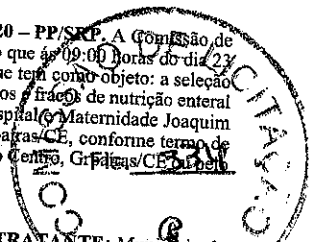 20 – PP/SRP. A Comissão de
o que às 09:00 horas do dia 23
ue tem como objeto: a seleção
os e fracos de nutrição enteral
spital e Maternidade Joaquim
/CE, conforme termo de
Centro,
DE LICITAÇÃO
TRATANTE: